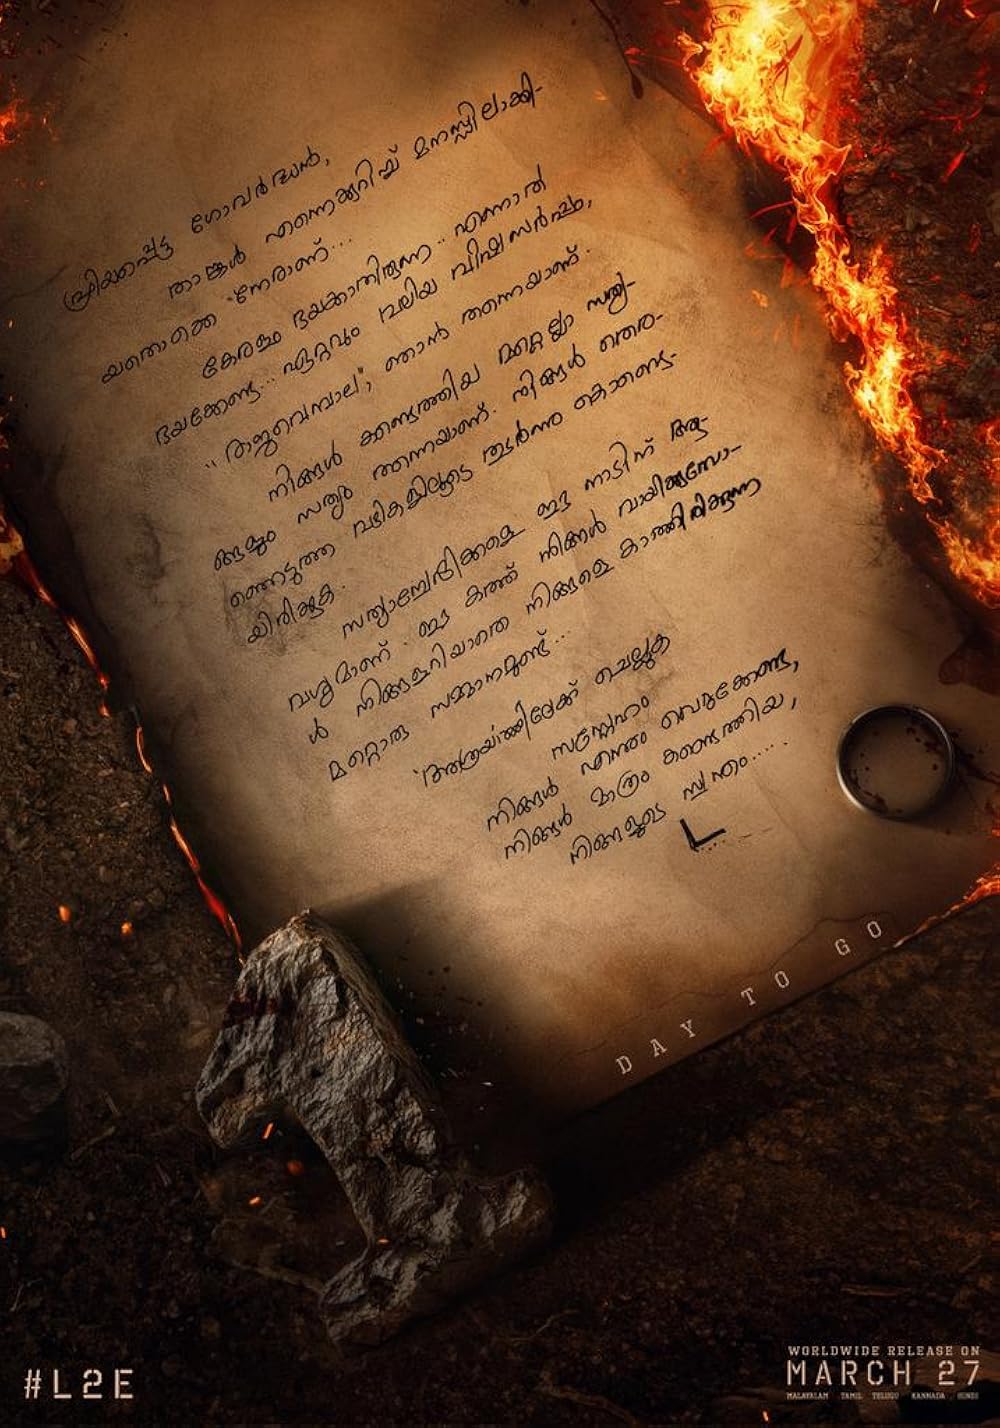 പ്രിയപ്പെട്ട ഗോവർദ്ധൻ,
താങ്കൾ എന്നെക്കുറിച്ച് മനസ്സിലാക്കി-
യതൊക്കെ "നേരാണ്...
കേരളം ഭയക്കാതിരുന്ന.. എന്നാൽ
ഭയക്കേണ്ട... ഏറ്റവും വലിയ വിഷസർപ്പം,
"രാജവെമ്പാല", ഞാൻ തന്നെയാണ്.
നിങ്ങൾ കണ്ടെത്തിയ മറ്റെല്ലാ സത്യ-
ങ്ങളും സത്യം തന്നെയാണ്. നിങ്ങൾ തെര-
ഞ്ഞെടുത്ത വഴികളിലൂടെ തുടർന്നു കൊണ്ടെ-
യിരിക്കുക.
സത്യാന്വേഷികളെ ഈ നാടിന് ആ-
വശ്യമാണ്. ഈ കത്ത് നിങ്ങൾ വായിക്കുമ്പോ-
ൾ നിങ്ങളറിയാതെ നിങ്ങളെ കാത്തിരിക്കുന്ന
മറ്റൊരു സമ്മാനമുണ്ട്...
ചെല്ലുക
സസ്നേഹം
നിങ്ങൾ എന്നും വെറുക്കേണ്ട,
നിങ്ങൾ മാത്രം കണ്ടെത്തിയ,
നിങ്ങളുടെ സ്വന്തം.....
L
1
DAY TO GO
#L2E
WORLDWIDE RELEASE ON
MARCH 27
MALAYALAM TAMIL TELUGU KANNADA HINDI